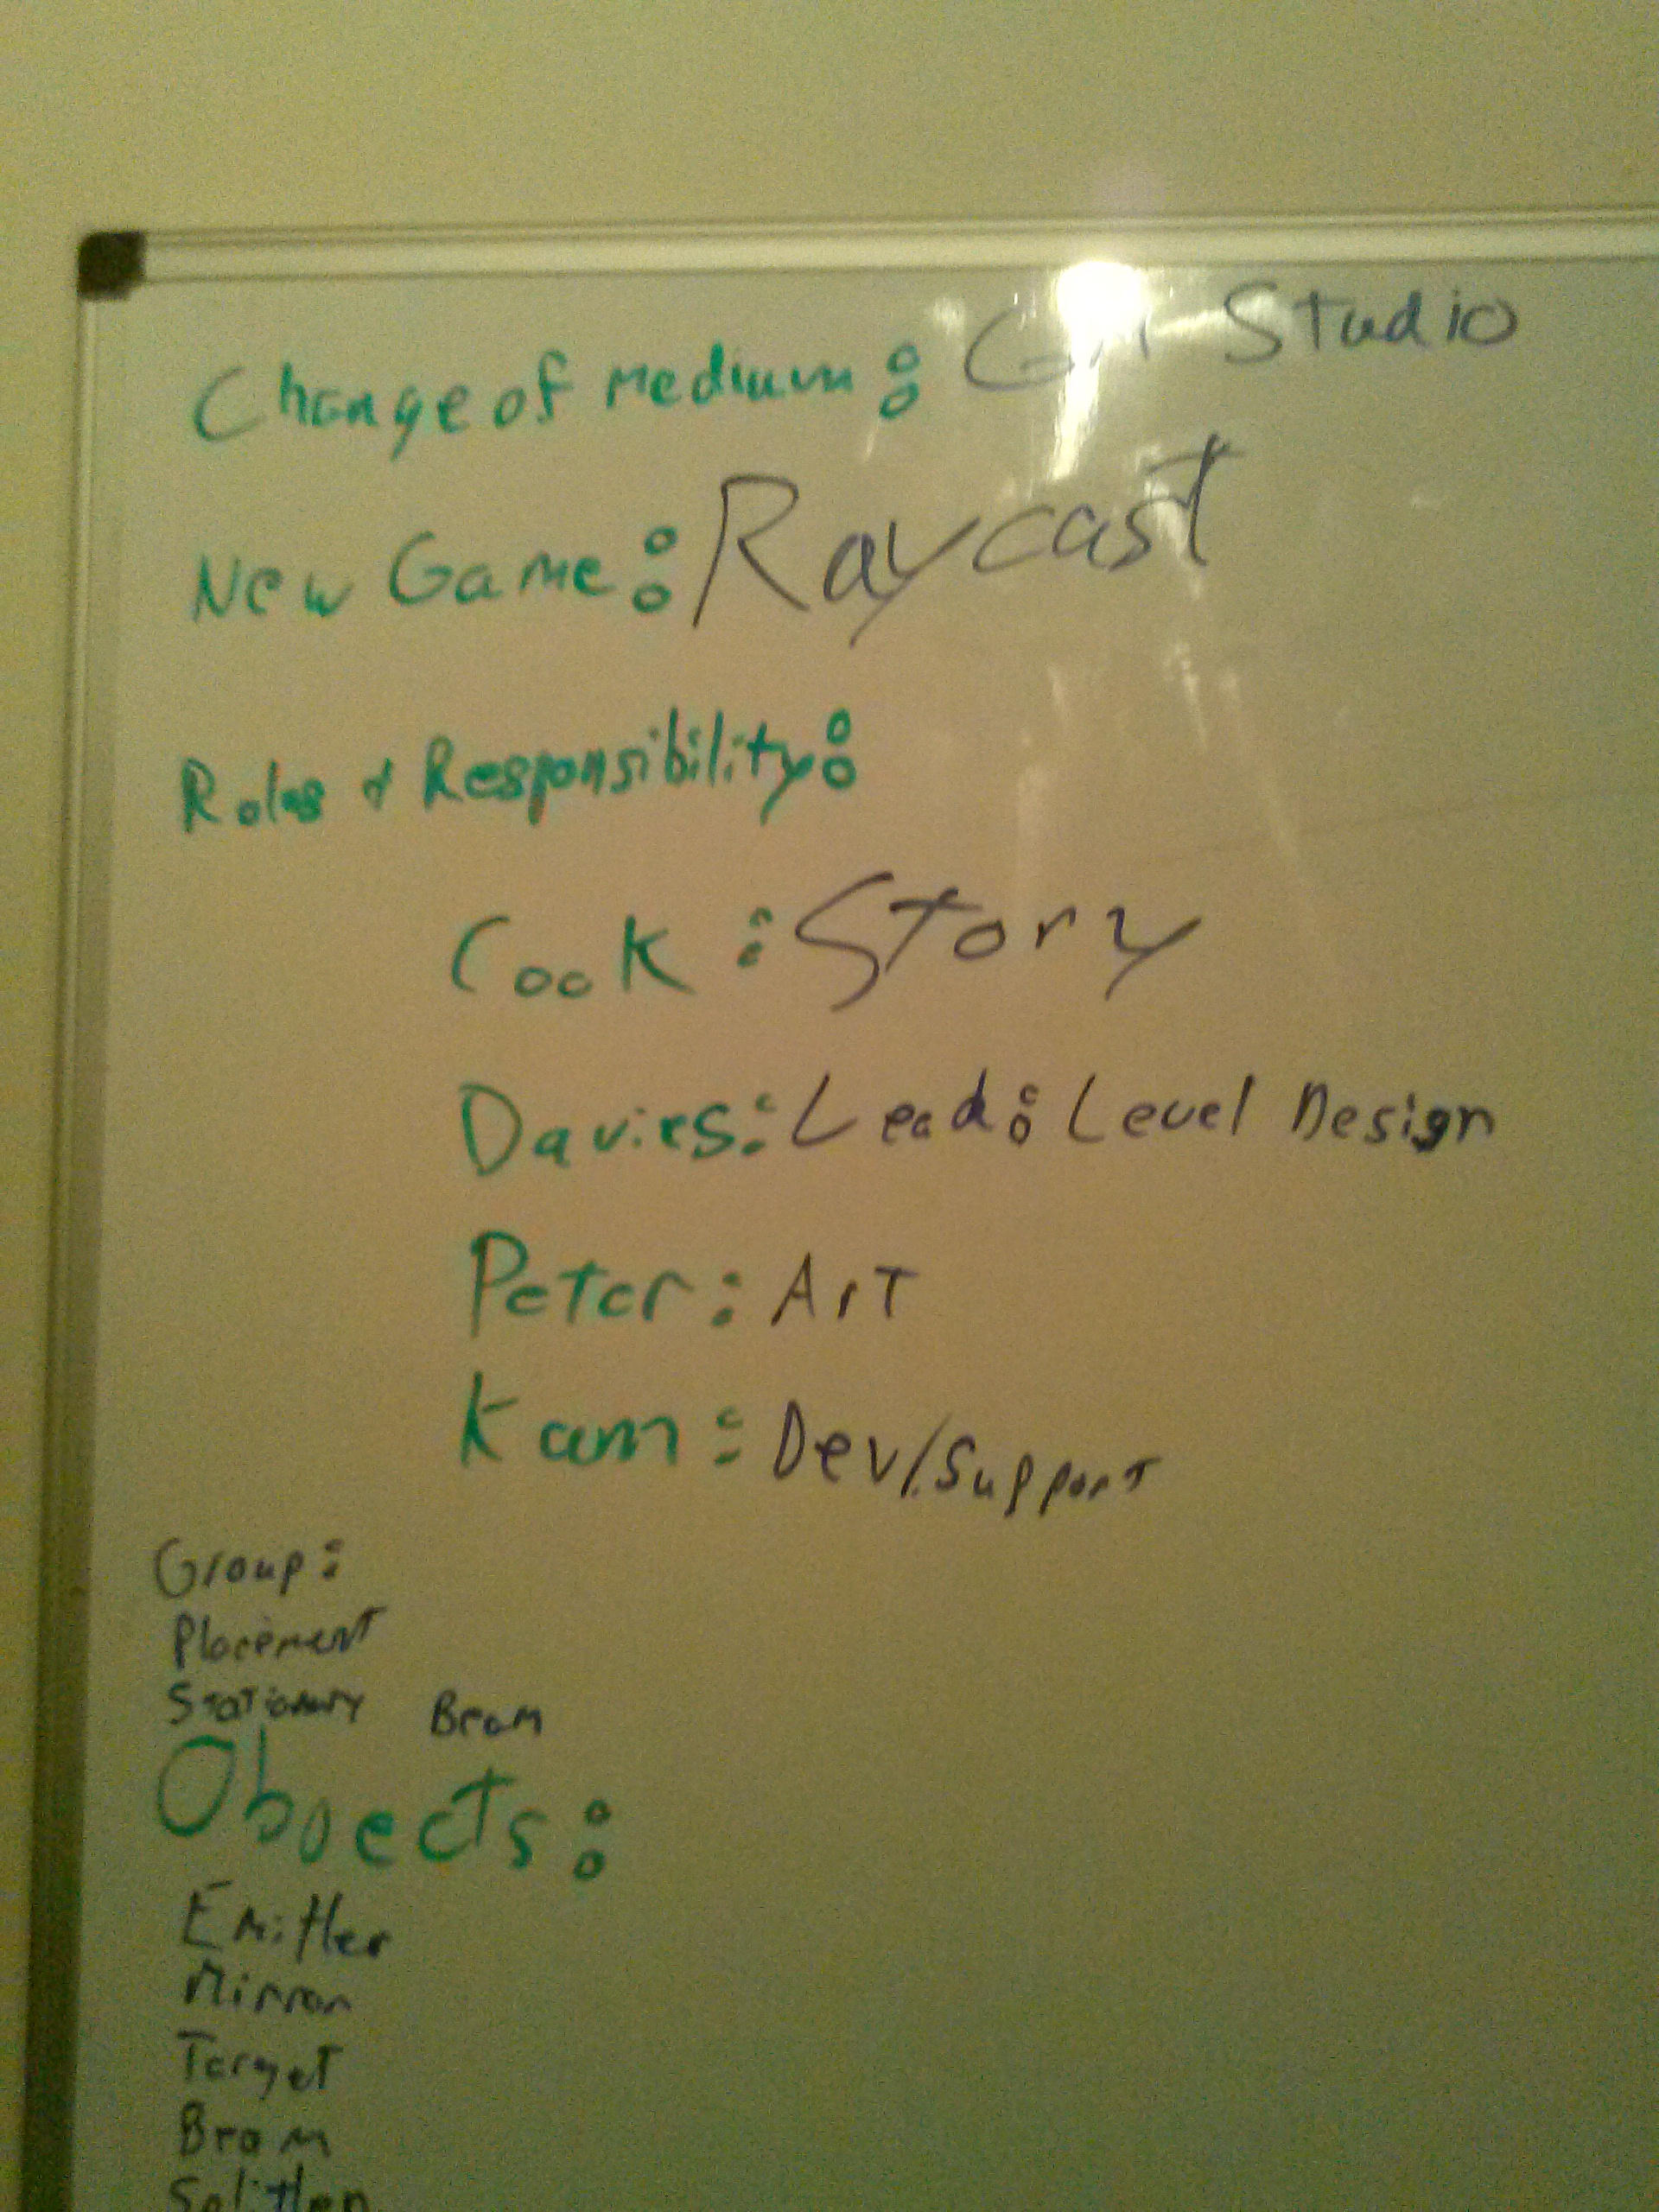 Change of medium: GM Studio
New Game: Raycast
Roles & Responsibility:
Cook: Story
Davies: Lead: Level Design
Peter: Art
Kam: Dev/Support
Group:
Placement
Stationary Beam
Objects:
Emitter
Mirror
Target
Beam
Splitter